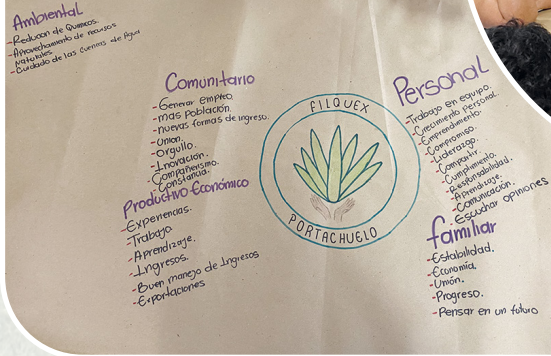 Ambiental
-Reducción de Quimicos.
-Aprovechamiento de recursos
Naturales
-Cuidado de las Cuencas de Agua
Comunitario
-Generar empleo.
-mas Población.
-nuevas formas de ingreso.
-Union.
-Orgullo.
-Inovación.
-Compañerismo.
-Constancia.
Productivo Económico
-Experiencias.
-Trabajo.
-Aprendizaje.
-Ingresos.
-Buen manejo de Ingresos
-Exportaciones
FILQUEX
PORTACHUELO
Personal
-Trabajo en equipo.
-Crecimiento Personal.
-Emprendimiento.
-Compromiso.
-Liderazgo.
-Compartir.
-Cumplimiento.
-Responsabilidad.
-Aprendizaje.
-Comunicación.
-Escuchar opiniones
familiar
-Estabilidad.
-Economía.
-Unión.
-Progreso.
-Pensar en un futuro